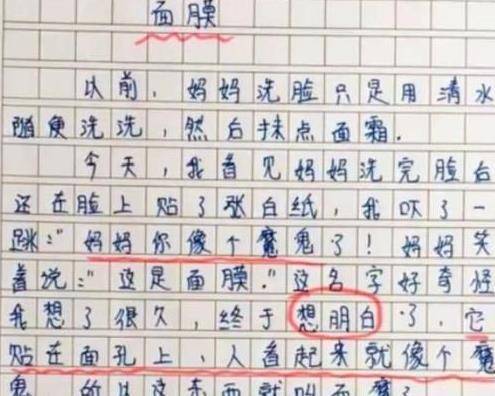 面膜
以前，妈妈洗脸只是用清水
随便洗洗，然后抹点面霜.
今天，我看见妈妈洗完脸后
还在脸上贴了张白纸，我吓了一
跳："妈妈你像个魔鬼了！妈妈笑
着说："这是面膜."这名字好奇怪
我想了很久，终于想明白了，它
贴在面孔上，人看起来就像个魔
鬼 所以这东西就叫面魔了